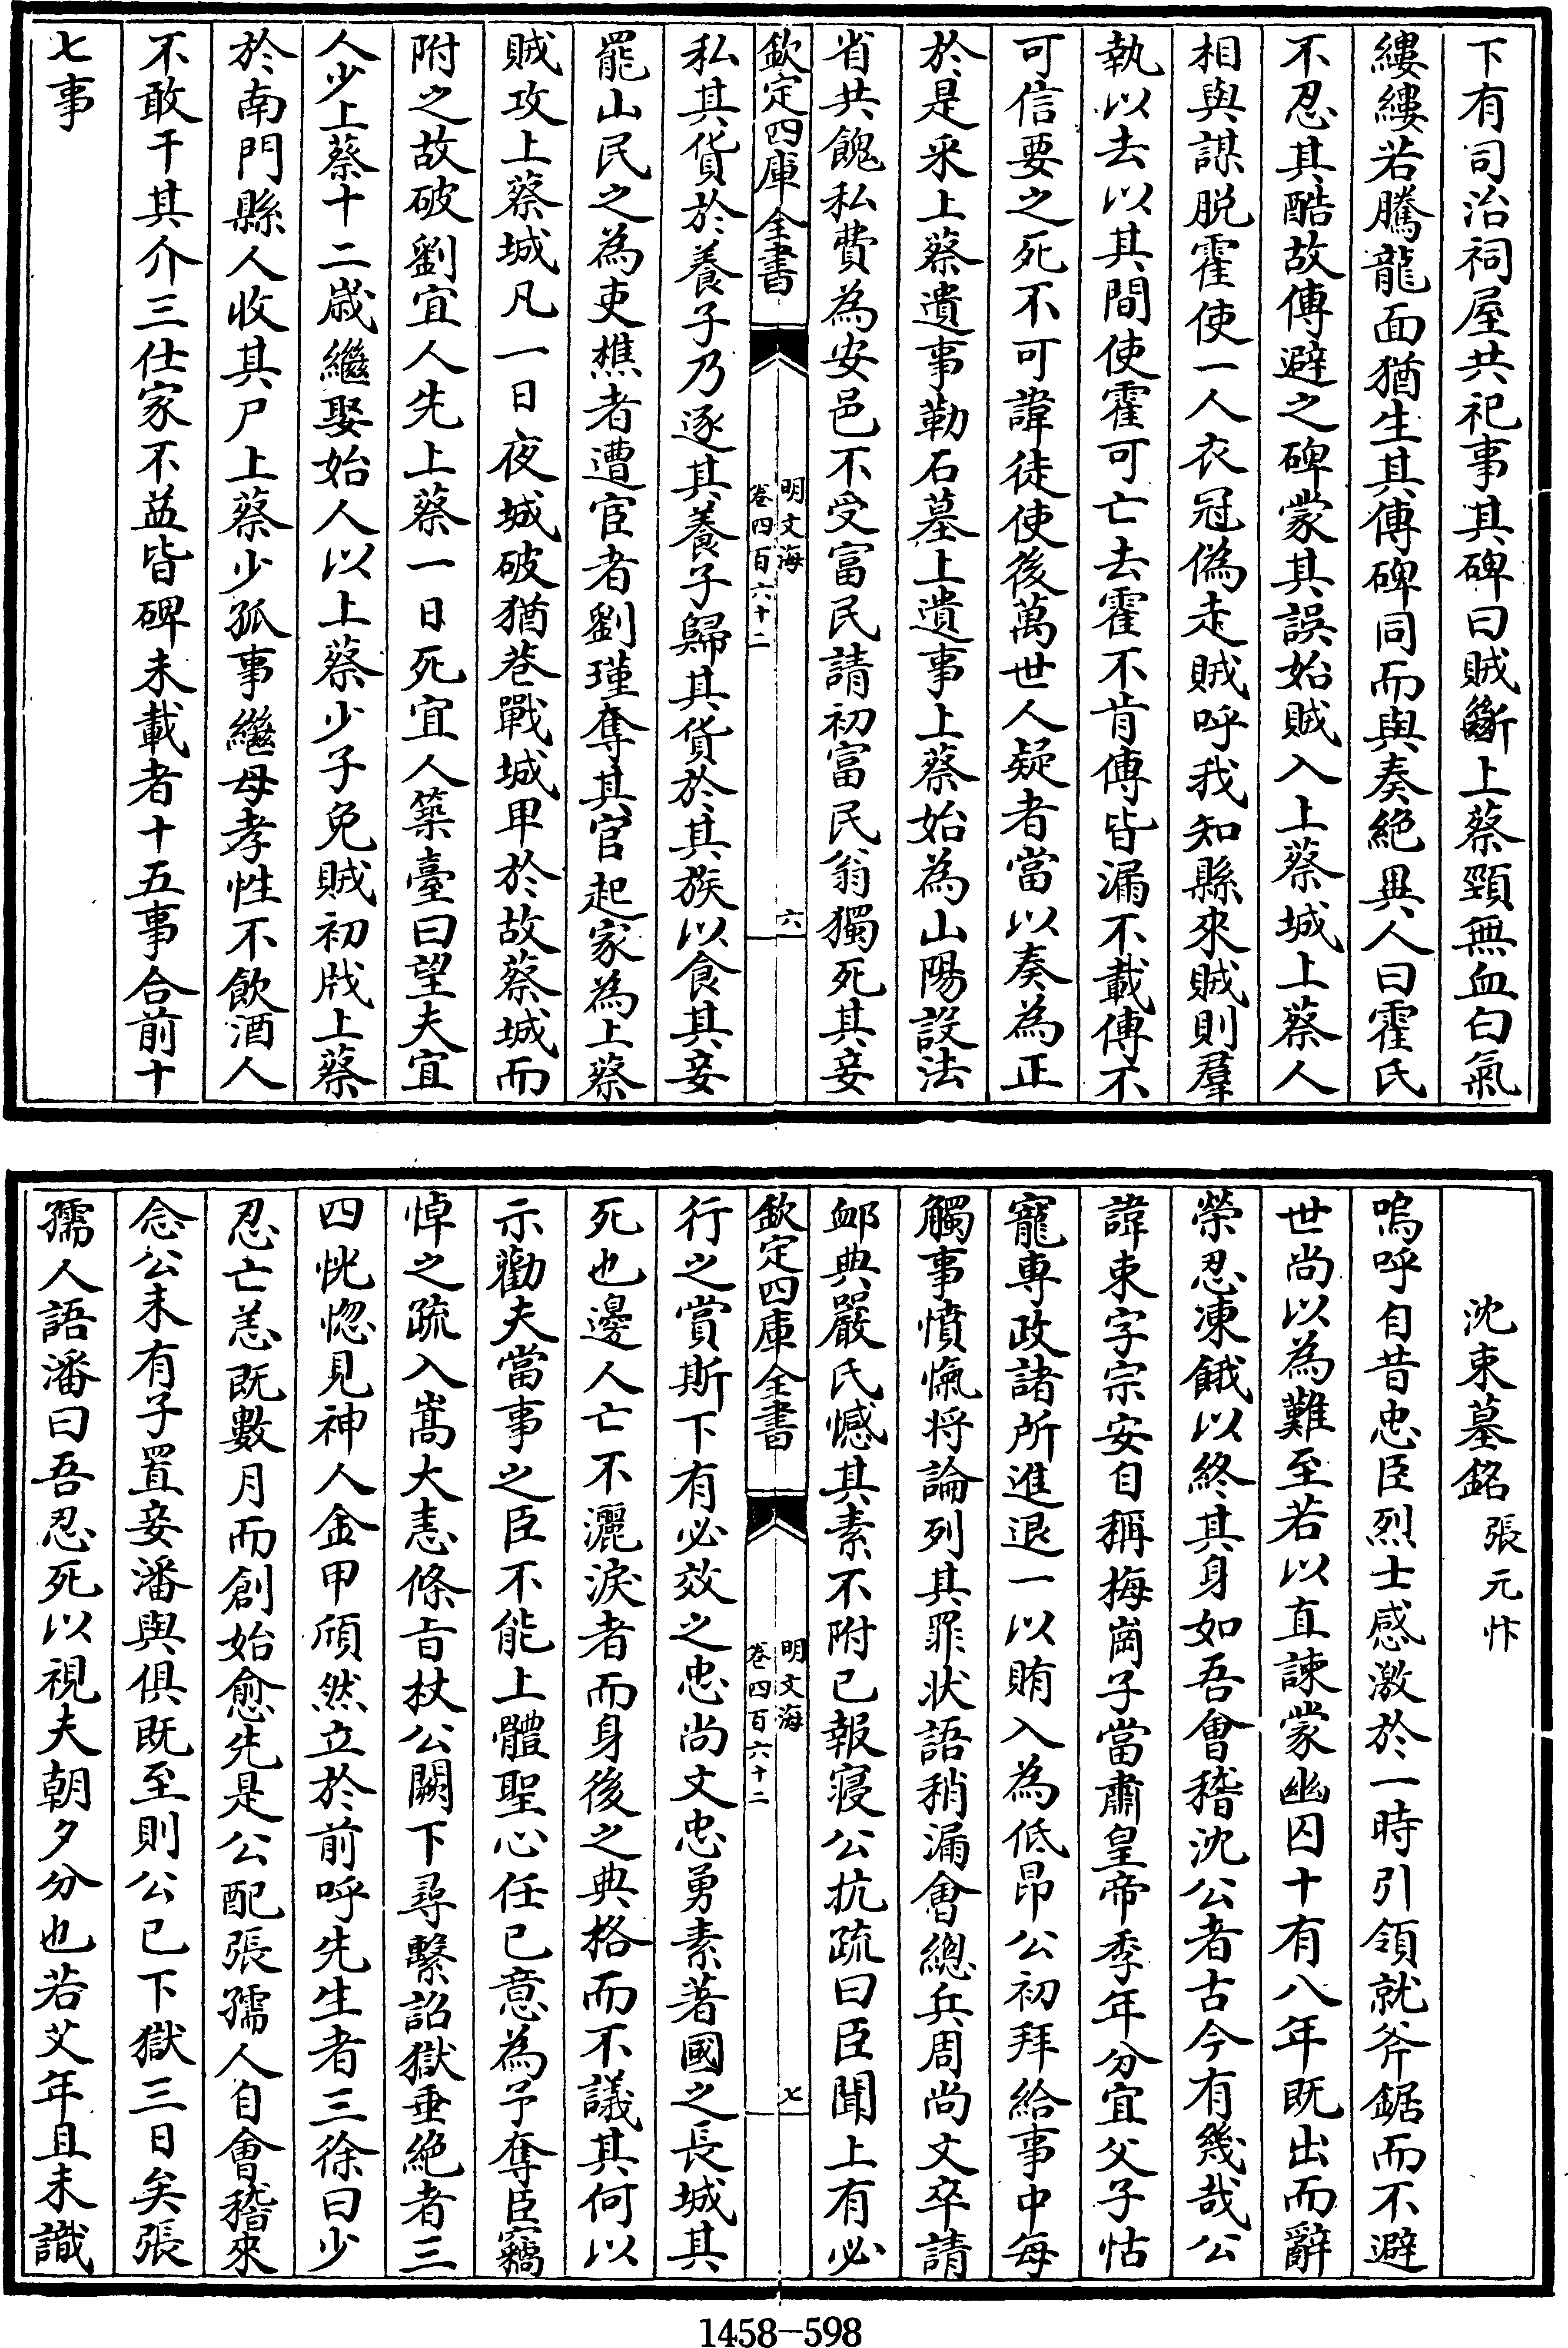 下有司治祠屋共祀事其碑曰賊斷上蔡頸無血白氣
縷縷若騰龍面猶生其傳碑同而與奏絶異人曰霍氏
不忍其酷故傳避之碑蒙其誤始賊入上蔡城上蔡人
相與謀脱霍使一人衣冠偽走賊呼我知縣來賊則羣
執以去以其間使霍可亡去霍不肯傳皆漏不載傳不
可信要之死不可諱徒使後萬世人疑者當以奏為正
於是采上蔡遺事勒石墓上遺事上蔡始為山陽設法
省共餽私費為安邑不受富民請初富民翁獨死其妾
欽定四庫全書
明文海
卷四百六十二
六
私其貨於養子乃逐其養子歸其貨於其族以食其妾
罷山民之為吏樵者遭宦者劉瑾奪其官起家為上蔡
賊攻上蔡城凡一日夜城破猶巷戰城卑於故蔡城而
附之故破劉宜人先上蔡一日死宜人築臺曰望夫宜
人少上蔡十二歲繼娶始人以上蔡少子免賊初戕上蔡
於南門縣人收其尸上蔡少孤事繼母孝性不飲酒人
不敢干其介三仕家不益皆碑未載者十五事合前十
七事
沈束墓銘 張元忭
嗚呼自昔忠臣烈士感激於一時引領就斧鋸而不避
世尚以為難至若以直諫蒙幽囚十有八年既出而辭
榮忍凍餓以終其身如吾會稽沈公者古今有幾哉公
諱束字宗安自稱梅崗子當肅皇帝季年分宜父子怙
寵專政諸所進退一以賄入為低昂公初拜給事中每
觸事憤愾将論列其罪状語稍漏會總兵周尚文卒請
䘏典嚴氏憾其素不附已報寢公抗疏曰臣聞上有必
欽定四庫全書
明文海
卷四百六十二
七
行之賞斯下有必效之忠尚文忠勇素著國之長城其
死也邊人亡不灑淚者而身後之典格而不議其何以
示勸夫當事之臣不能上體聖心任已意為予奪臣竊
悼之疏入嵩大恚條㫖杖公闕下尋繫詔獄垂絶者三
四恍惚見神人金甲頎然立於前呼先生者三徐曰少
忍亡恙既數月而創始愈先是公配張孺人自會稽來
念公未有子置妾潘與俱既至則公已下獄三日矣張
孺人語潘曰吾忍死以視夫朝夕分也若艾年且未識
1458-598